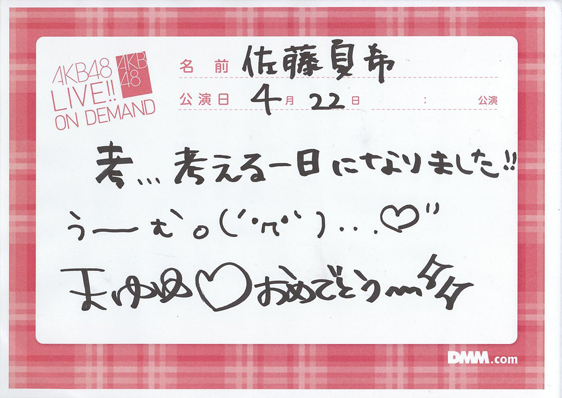 AKB48
LIVE!!
ON DEMAND
AKB
48
名前 佐藤夏希
公演日 4月22日 : 公演
考...考える一日になりました!!
うーむ。(´・π・`)...♡"
天ゆめ♡おめでとう〜
DMM.com